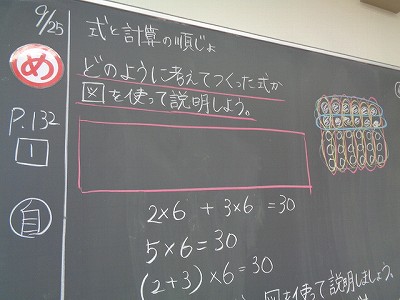 9/25
式と計算の順じょ
め
どのように考えてつくった式か
図を使って説明しよう。
P.132
1
自
2×6 + 3×6 = 30
5×6 = 30
(2+3)×6 = 30
図を使って説明しましょう。